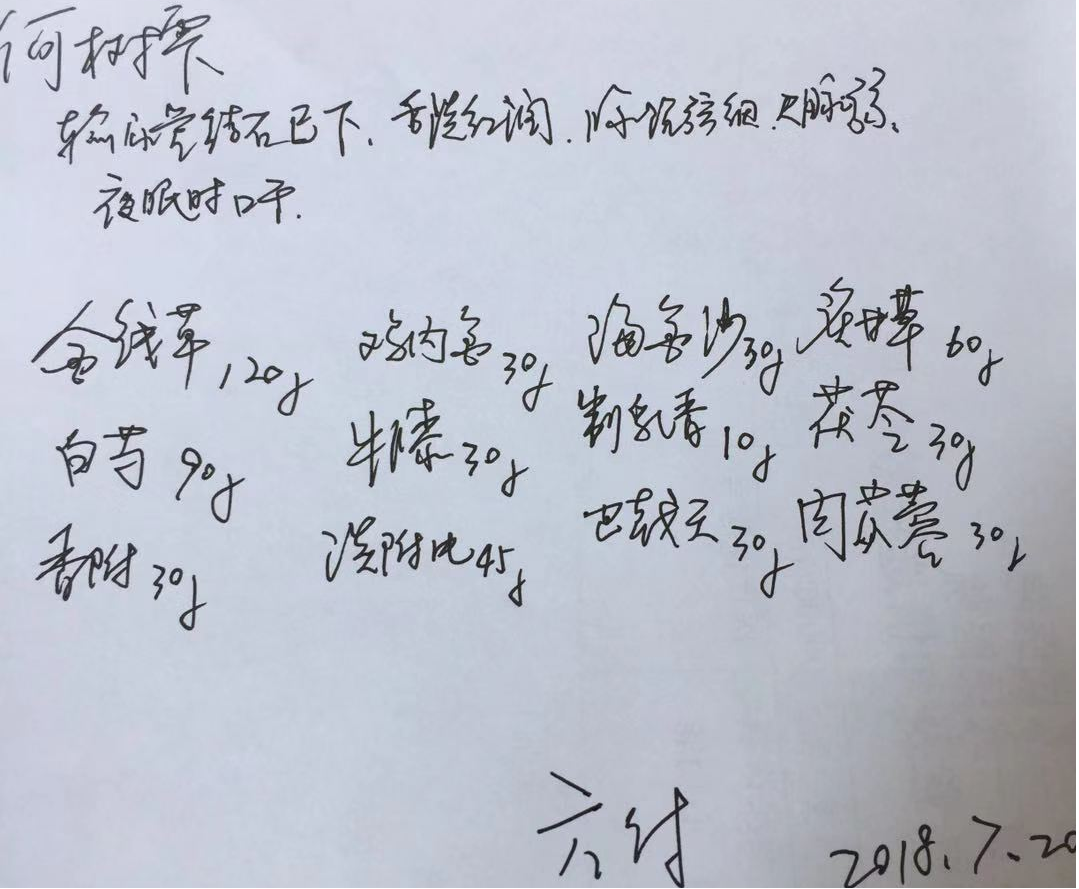 何树霖
输尿管结石已下. 舌淡红润. 脉沉弦细. 尺脉弱.
夜眠时口干.
金钱草 120g 鸡内金 30g 海金沙 30g 炙甘草 60g
白芍 90g 牛膝 30g 制乳香 10g 茯苓 30g
香附 30g 淡附片 45g 巴戟天 30g 肉苁蓉 30g
六付 2018.7.20